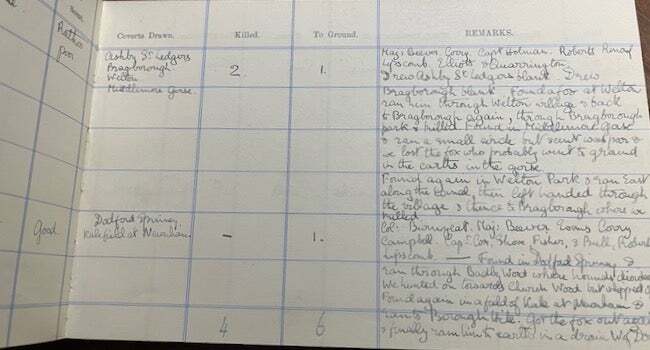 Scent.
Rather
poor
Coverts Drawn.
Killed.
To Ground.
REMARKS.
Ashby St Ledgers
Bragborough
Welton
Middlemore Gorse.
2.
1.
Maj: Beaver. Corry. Capt Holman. Roberts
Lipscomb. Elliott & Quarrington.
Drew Ashby St Ledgers blank. Drew
Bragborough blank. Found a fox at Welton
ran him through Welton village & back
to Bragborough again, through Bragborough
park & killed. Found in Middlemore Gorse
& ran a small circle but scent was poor &
we lost the fox who probably went to ground
in the earths in the gorse
Found again in Welton Park & ran East
along the canal then left handed through
the village & thence to Bragborough where we
killed.
Good.
Dodford Spinney
Kale field at
–
1.
Col: Maj: Beaver Evans Corry
Campbell Capt: Cox, Fisher, & Bull, Robert
Lipscomb. — Found in Dodford Spinney &
ran through Badby Wood where hounds divided
We hunted on towards Church Wood but stopped
Found again in a field of Kale at &
ran to Borough Hill. Got the fox out
& finally ran him to earth in a drain
4
6